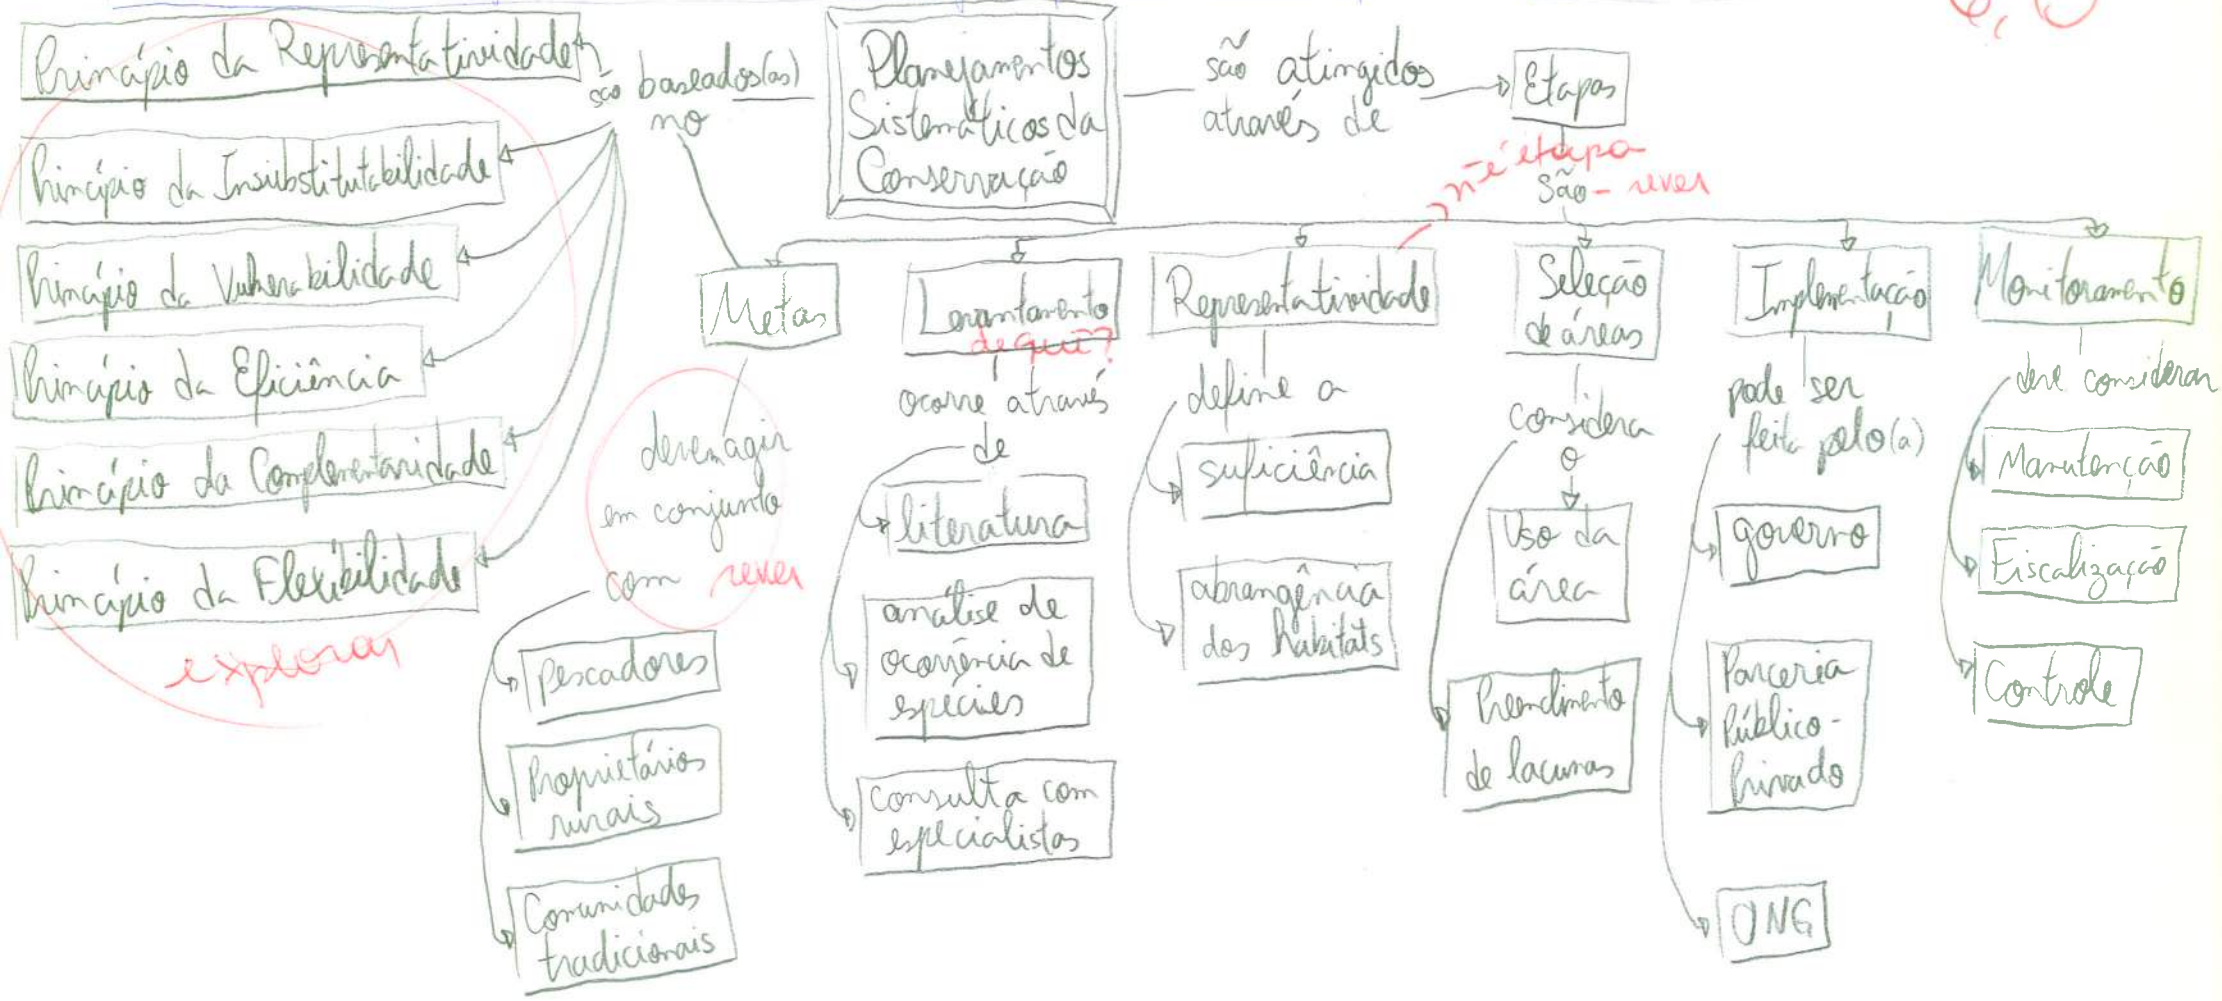 Princípio da Representatividade
são baseados(as)
no
Planejamentos
Sistemáticos da
Conservação
são atingidos
através de
Etapas
não é etapa
São - rever
Princípio da Insubstitutabilidade
Princípio da Vulnerabilidade
Princípio da Eficiência
Princípio da Complementaridade
Princípio da Flexibilidade
explorar
Metas
devem agir
em conjunto
com rever
pescadores
Proprietários
rurais
Comunidades
tradicionais
Levantamento
de quê?
ocorre através
de
literatura
análise de
ocorrência de
espécies
consulta com
especialistas
Representatividade
define a
suficiência
abrangência
dos habitats
Seleção
de áreas
considera
o
Uso da
área
Preendimento
de lacunas
Implementação
pode ser
feita pelo(a)
governo
Parceria
Público-
Privado
ONG
Monitoramento
deve considerar
Manutenção
Fiscalização
Controle